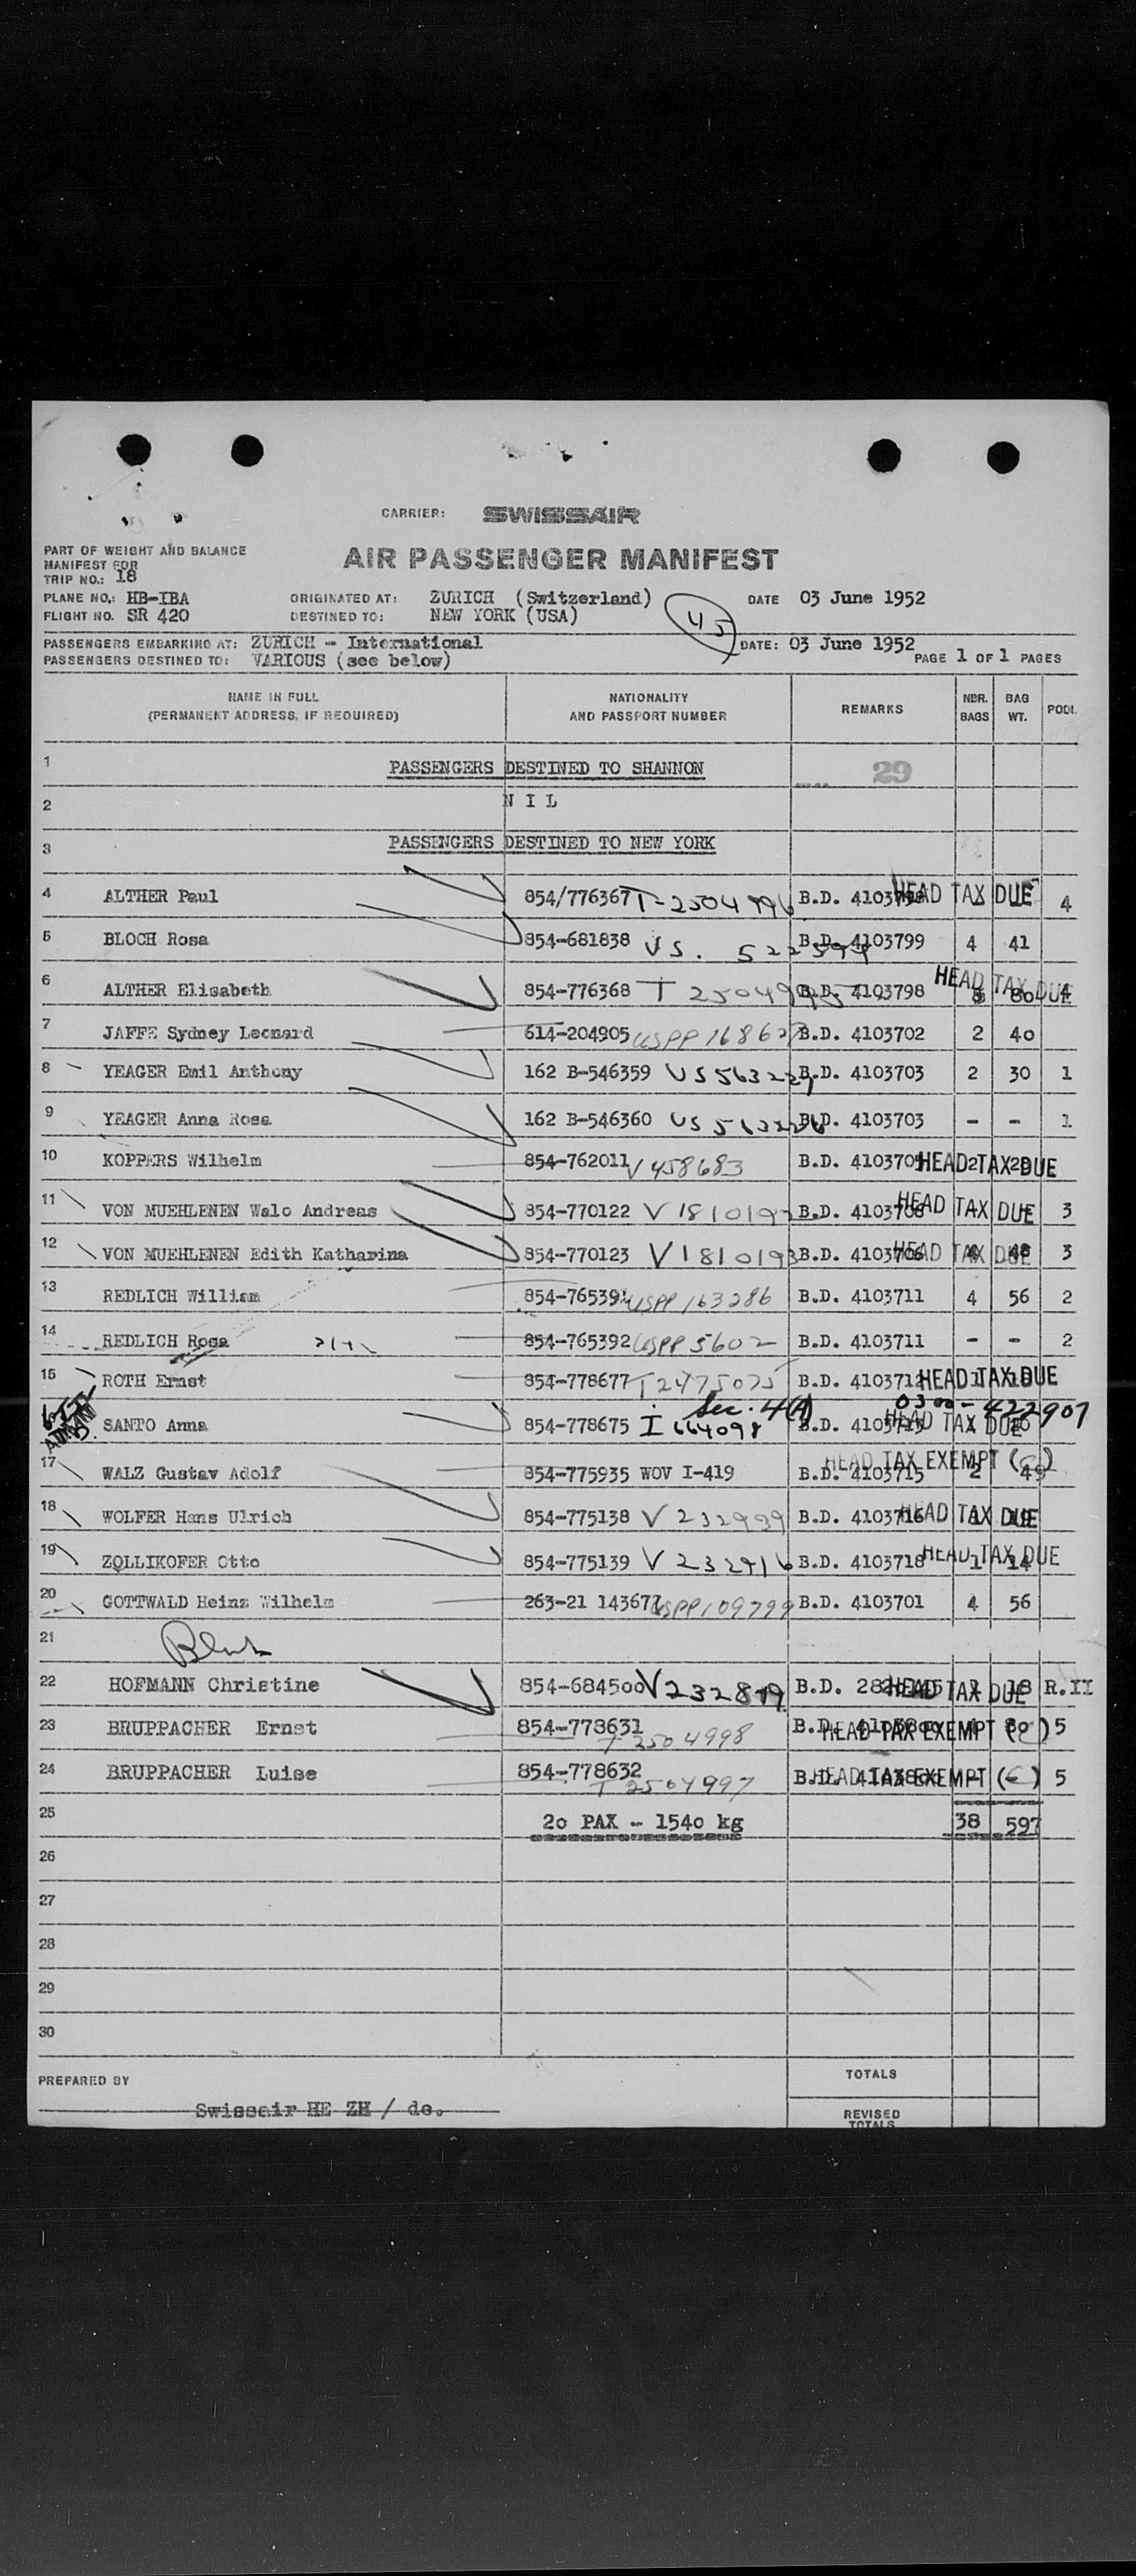 CARRIER: SWISSAIR
AIR PASSENGER MANIFEST
PART OF WEIGHT AND BALANCE
MANIFEST FOR
TRIP NO.: 18
PLANE NO.: HB-IBA ORIGINATED AT: ZURICH (Switzerland) DATE 03 June 1952
FLIGHT NO. SR 420 DESTINED TO: NEW YORK (USA)
45
PASSENGERS EMBARKING AT: ZURICH - International DATE: 03 June 1952
PASSENGERS DESTINED TO: VARIOUS (see below) PAGE 1 OF 1 PAGES
NAME IN FULL NATIONALITY REMARKS NBR. BAG POOL
(PERMANENT ADDRESS, IF REQUIRED) AND PASSPORT NUMBER BAGS WT.
1 PASSENGERS DESTINED TO SHANNON 29
2 N I L
3 PASSENGERS DESTINED TO NEW YORK
4 ALTHER Paul 854/776367 T-2504996 B.D. HEAD TAX DUE 4
5 BLOCH Rosa 854-681838 VS. B.D. 4103799 4 41
6 ALTHER Elisabeth 854-776368 T B.D. 4103798 HEAD TAX DUE 80 4
7 JAFFE Sydney Leonard 614-204905 USPP B.D. 4103702 2 40
8 YEAGER Emil Anthony 162 B-546359 US B.D. 4103703 2 30 1
9 YEAGER Anna Rosa 162 B-546360 US B.D. 4103703 - - 1
10 KOPPERS Wilhelm 854-762011 V458683 B.D. HEAD TAX DUE
11 VON MUEHLENEN Walo Andreas 854-770122 V B.D. HEAD TAX DUE 3
12 VON MUEHLENEN Edith Katharina 854-770123 V1810193 B.D. 4103706 HEAD TAX DUE 4 48 3
13 REDLICH William USPP 163286 B.D. 4103711 4 56 2
14 REDLICH Rosa 854-765392 USPP 5602 B.D. 4103711 - - 2
15 ROTH Ernst 854-778677 T2475075 B.D. HEAD TAX DUE
Sec. 4(A) 0300-422907
SANTO Anna 854-778675 I 664098 B.D. HEAD TAX DUE
17 WALZ Gustav Adolf 854-775935 WOV I-419 B.D. 4103715 HEAD TAX EXEMPT 2 45
18 WOLFER Hans Ulrich 854-775138 V 232939 B.D. 4103716 HEAD TAX DUE
19 ZOLLIKOFER Otto 854-775139 V 232916 B.D. 4103718 HEAD TAX DUE 1 14
20 GOTTWALD Heinz Wilhelm 263-21 143677 USPP109799 B.D. 4103701 4 56
21
22 HOFMANN Christine 854-684500 V B.D. HEAD TAX DUE 18 R.II
23 BRUPPACHER Ernst 854-778631 T 2504998 B.D. HEAD TAX EXEMPT 5
24 BRUPPACHER Luise 854-778632 T 2504997 B.D. HEAD TAX EXEMPT 5
25 20 PAX - 1540 kg 38 597
26
27
28
29
30
PREPARED BY TOTALS
Swissair HE ZH / do.
REVISED
TOTALS